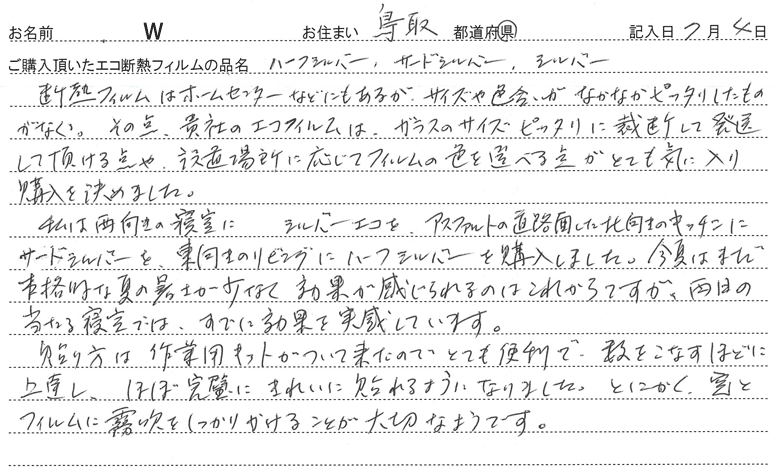 お名前 W お住まい 鳥取 都道府県 記入日 7月4日
ご購入頂いたエコ断熱フィルムの品名 ハーフシルバー、サードシルバー、シルバー
断熱フィルムはホームセンターなどにもあるが、サイズや色合いがなかなかピッタリしたもの
がなく。その点、貴社のエコフィルムは、ガラスのサイズピッタリに裁断して発送
して頂ける点や、設置場所に応じてフィルムの色を選べる点がとても気に入り
購入を決めました。
私は西向きの寝室に シルバーエコを、アスファルトの道路面した北向きのキッチンに
サードシルバーを 東向きのリビングにハーフシルバーを購入しました。今夏はまだ
本格的な夏の暑さが少なく効果が感じられるのはこれからですが、西日の
当たる寝室では、すでに効果を実感しています。
貼り方は作業用キットがついて来たのでとても便利で、数をこなすほどに
上達し、ほぼ完璧にきれいに貼れるようになりました。とにかく、窓と
フィルムに霧吹をしっかりかけることが大切なようです。